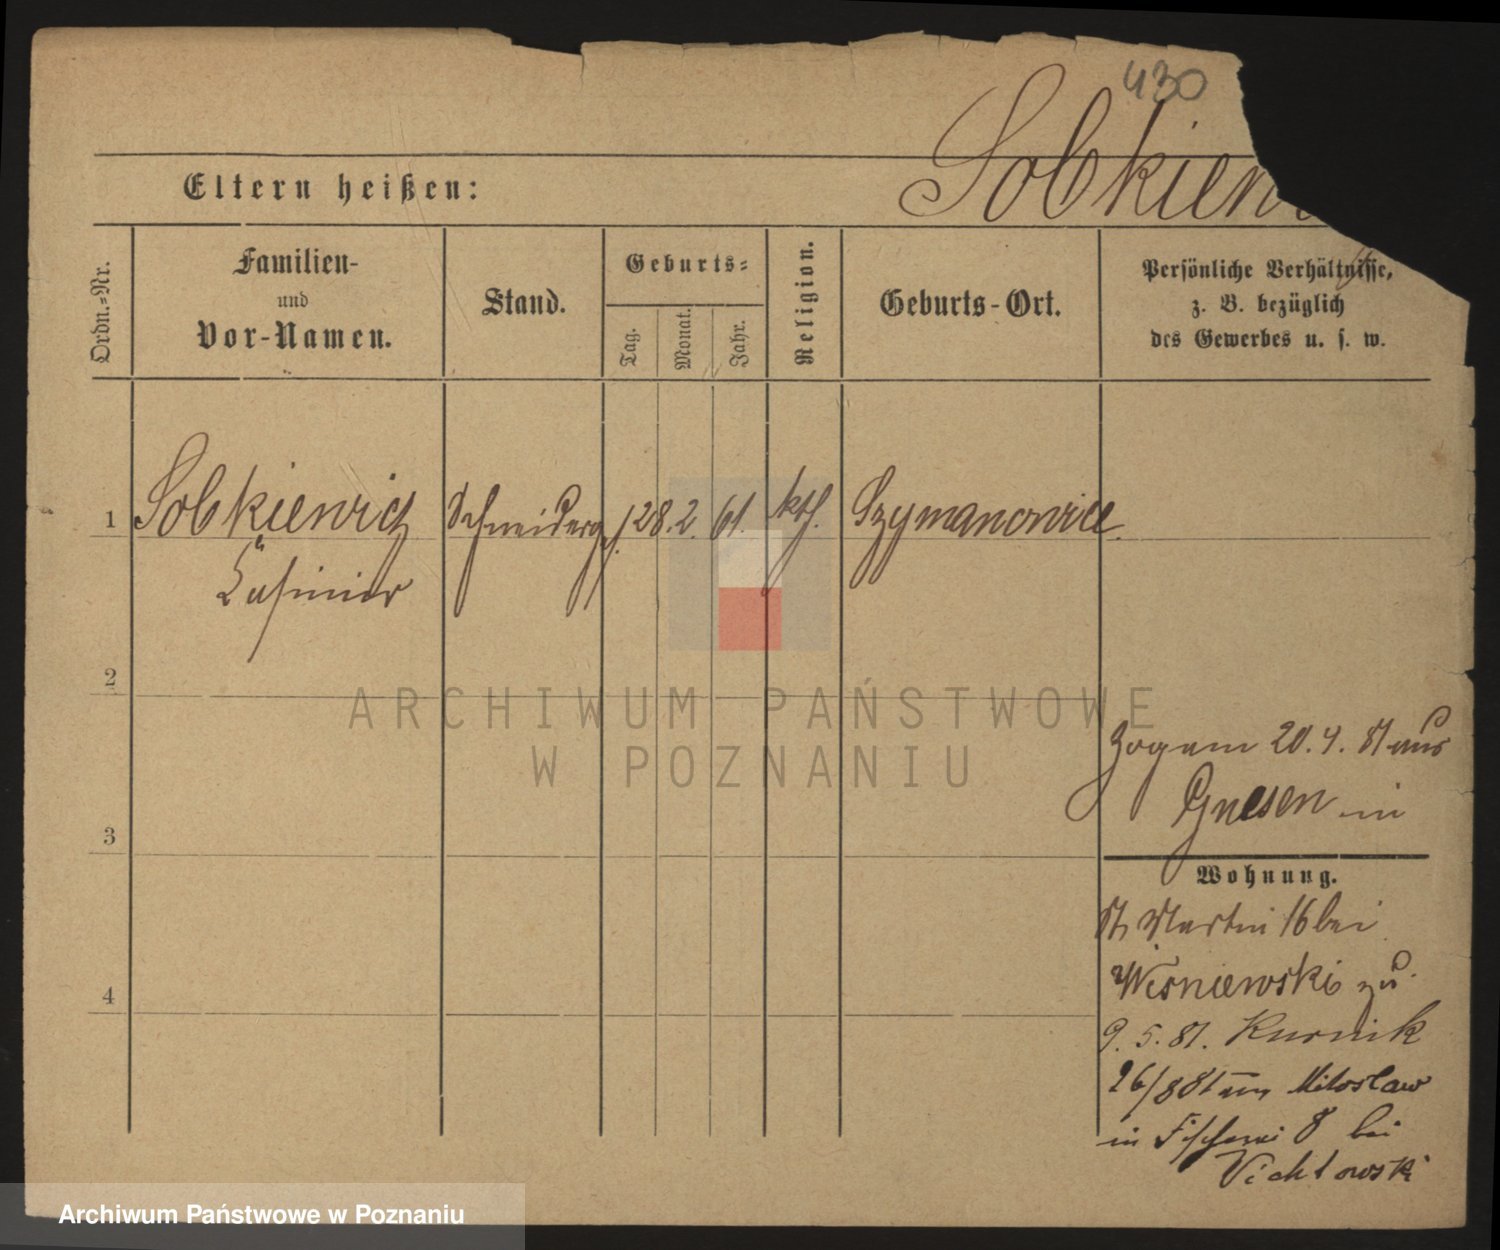 430
Sobkiew
Eltern heißen:
Ordn.-Nr.
Familien-
und
Vor-Namen.
Stand.
Geburts-
Tag.
Monat.
Jahr.
Religion.
Geburts-Ort.
Persönliche Verhältnisse,
z. B. bezüglich
des Gewerbes u. s. w.
1 Sobkiewicz Schneiderg. 28. 2. 61. kth. Szymanowice.
Casimir
2
ARCHIWUM PAŃSTWOWE
W POZNANIU
Zogam 20. 4. 81 aus
Gnesen in
3
Wohnung.
St. Martin 16 bei
Wisniewski zu
4
9. 5. 81. Kurnik
26/8 81 Miloslaw
in Fischerei 8 bei
Vichtowski
Archiwum Państwowe w Poznaniu